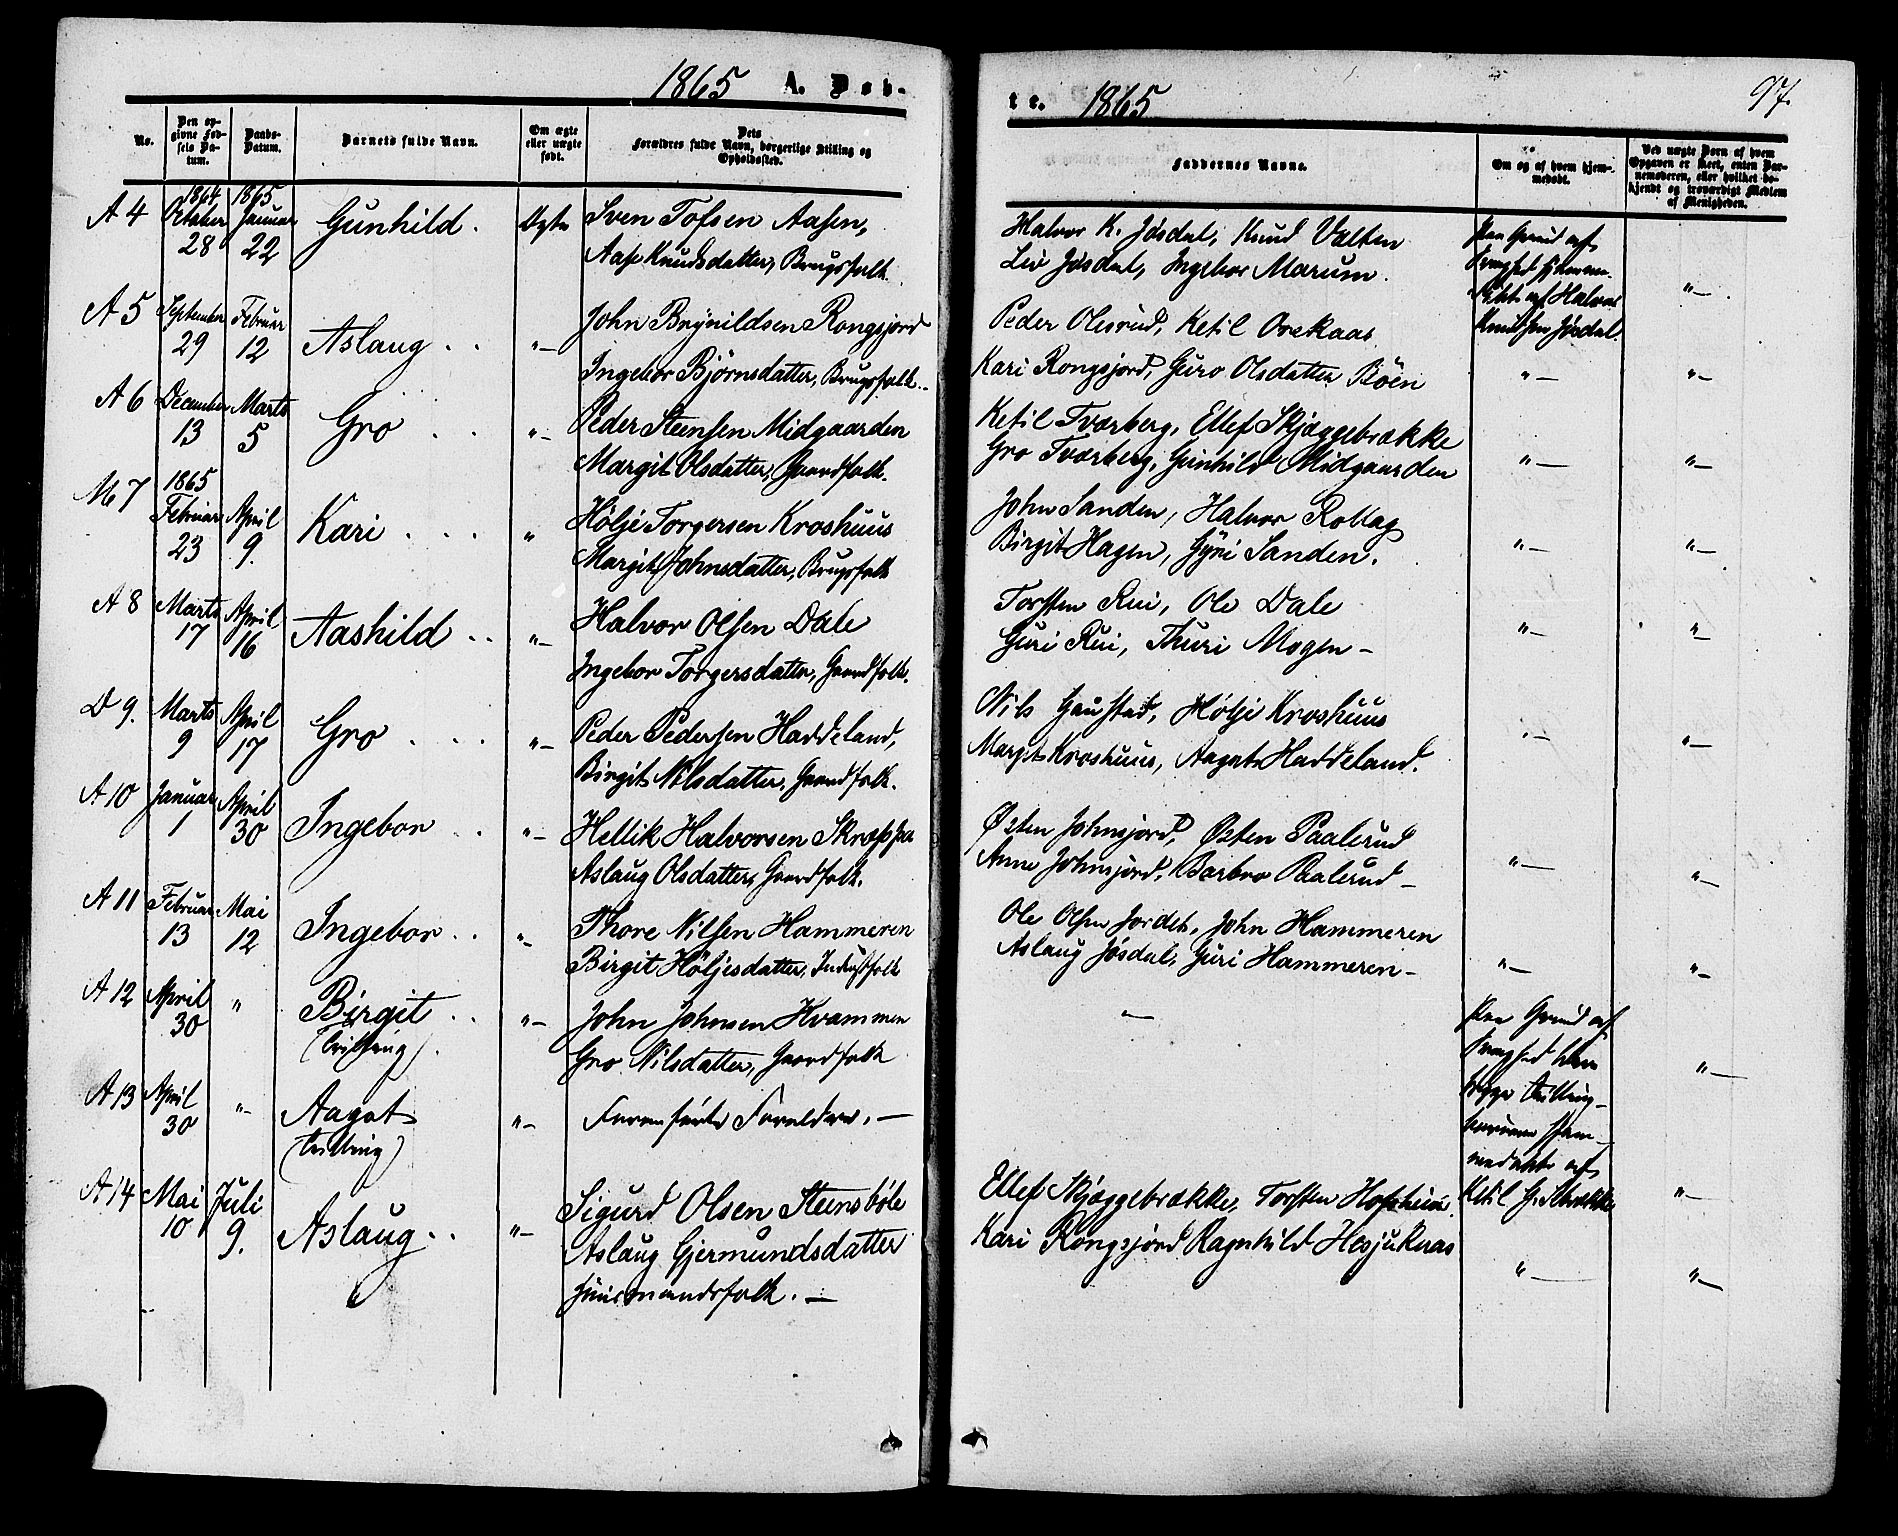 1865 A. Døb-
No.
Den op-
givne Fød-
sels Da-
tum.
Daabs-
Datum.
Barnets fulde Navn.
Om ægte
eller uægte
født.
Dets
Forældres fulde Navn, borgerlige Stilling og
Opholdssted.
A 4
1864
October
28
1865
Januar
22
Gunhild.
Ægte
Sven Tofsen Aasen,
Aase Knudsdatter, Brugsfolk
A 5
September
29
Februar
12
Aslaug . .
"–
John Brynildsen Rongsjord
Ingebor Björnsdatter, Brugsfolk.–
A 6
December
13
Marts
5
Gro . . .
"–
Peder Steensen Midgaarden
Margit Olsdatter, Gaardfolk.
M 7
1865
Februar
23
April
9.
Kari . . .
"
Hölje Torgersen Kroshuus
Margit Johnsdatter, Brugsfolk
A 8
Marts
17
April
16
Aashild . .
"–
Halvor Olsen Dale
Ingebor Torgersdatter, Gaardfolk.
D 9.
Marts
9
April
17
Gro . . .
"–
Peder Pedersen Haddeland,
Birgit Nilsdatter, Gaardfolk.
A 10
Januar
1
April
30
Ingebor . .
"–
Hellik Halvorsen
Aslaug Olsdatter, Gaardfolk.
A 11
Februar
13
Mai
12
Ingebor . .
"–
Thore Nilsen Hammeren
Birgit Höljesdatter, Inderstfolk
A 12
April
30
"
Birgit . .
(Tvilling).
"–
John Johnsen Kvammen
Gro Nilsdatter, Gaardfolk
A 13
April
30
"–
Aagot
(Tvilling)
"–
Foranførte Forældre. –
A 14
Mai
10
Juli
9.
Aslaug . .
"–
Sigurd Olsen Steensböle
Aslaug Gjermundsdatter
Huusmandsfolk. –
te. 1865
97.
Faddernes Navne.
Om og af hvem hjem-
medøbt.
Ved uægte Born af hvem
Opgaven er skeet, enten Bar-
nemoderen, eller hvilket be-
kjendt og troværdigt Medlem
af Menigheden.
Halvor K. Jösdal, Knud Valten
Liv Jösdal, Ingebor Marum.
Paa Grund af
Svaghed hjemme-
døbt af Halvor
Knudsen Jösdal.
"–.
Peder Olesrud, Ketil Ovekaas.
Kari Rongsjord, Guro Olsdatter Böen
"–
"–
Ketil Tværberg, Ellef Skjæggebrække
Gro Tværberg, Gunhild Midgaarden
"–
"–
John Sanden, Halvor Rollag
Birgit Hagen, Gyri Sanden.
"–
"–
Torsten Rui, Ole Dale
Guri Rui, Thuri Mogen –
"–
"–
Nils Gaustad, Hölje Kroshuus
Margit Kroshuus, Aagot Haddeland.
"–
"–
Østen Johnsjord, Østen Paalerud
Anne Johnsjord, Barbro Paalerud –
"–
"–
Ole Olsen Jordet, John Hammeren
Aslaug Jösdal, Guri Hammeren –
"–
"–
"–
Paa Grund af
Svaghed blev
begge Tvilling-
børnene hjem-
medøbte af
Ketil G.
"–
Ellef Skjæggebrække, Torsten
Kari Rongsjord Ragnhild Hesjukaas
"–
"–
"–